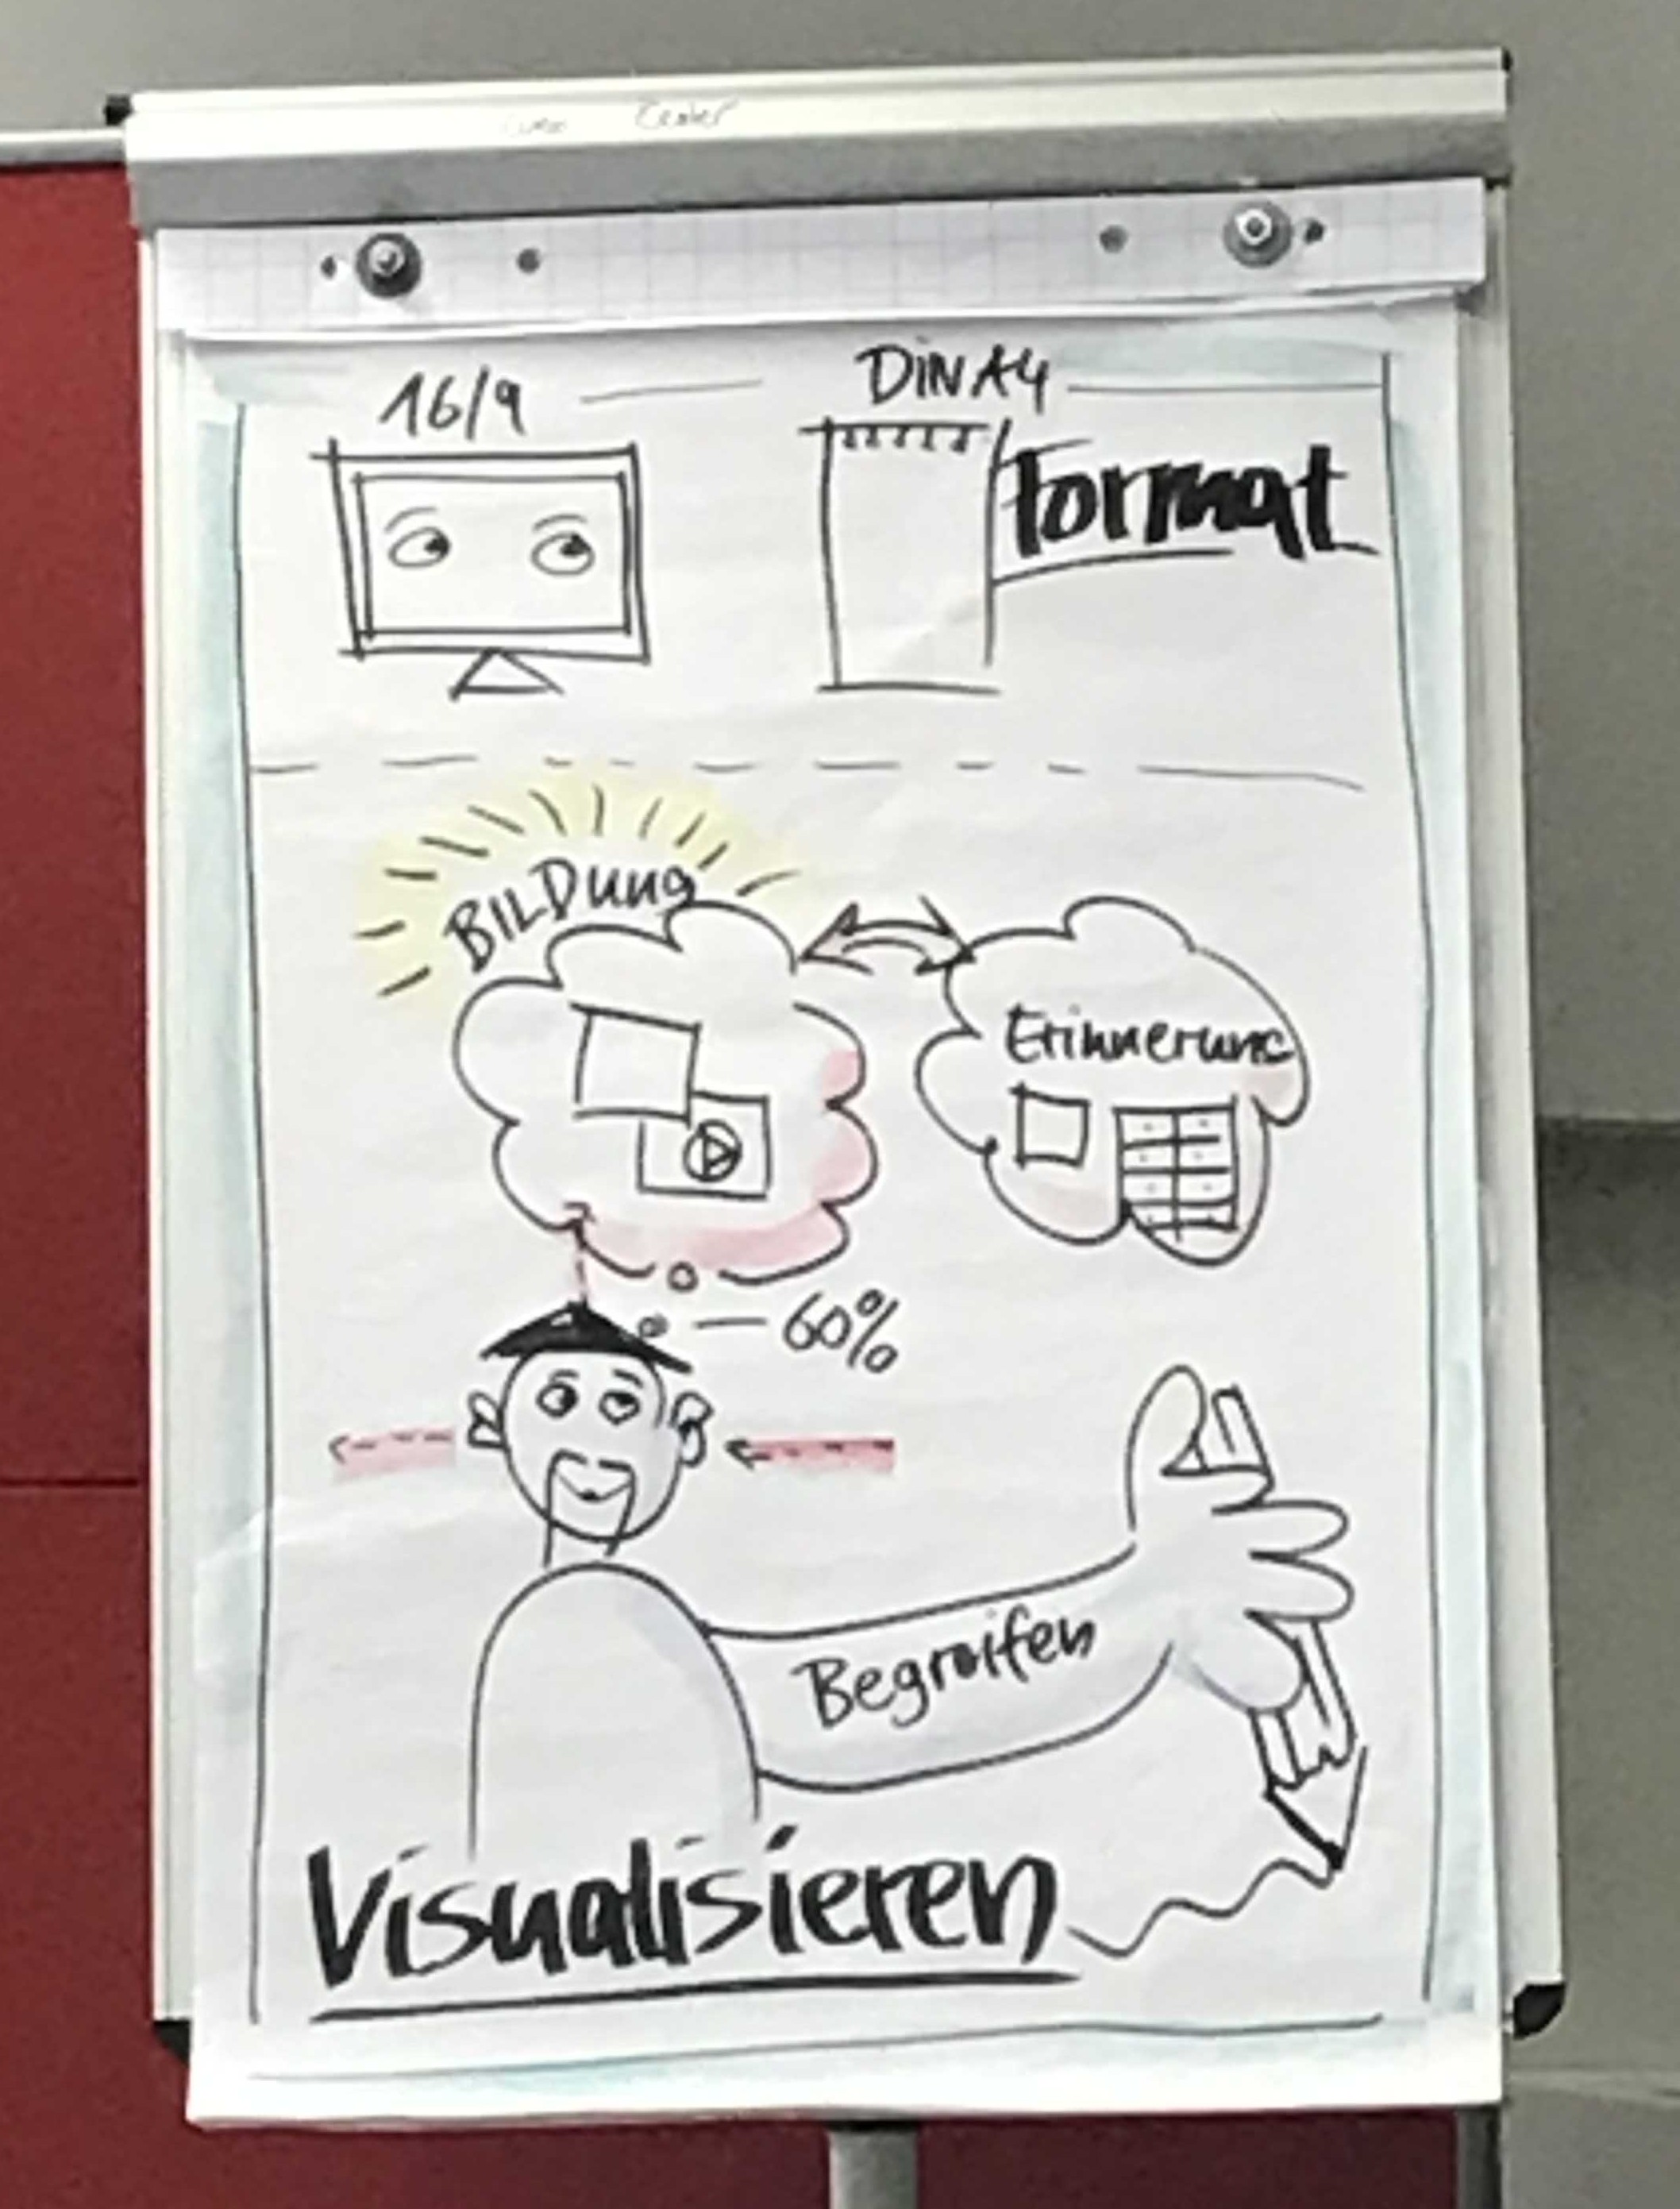 16/9
DIN A4
Format
BILDung
Erinnerung
60%
Begreifen
Visualisieren